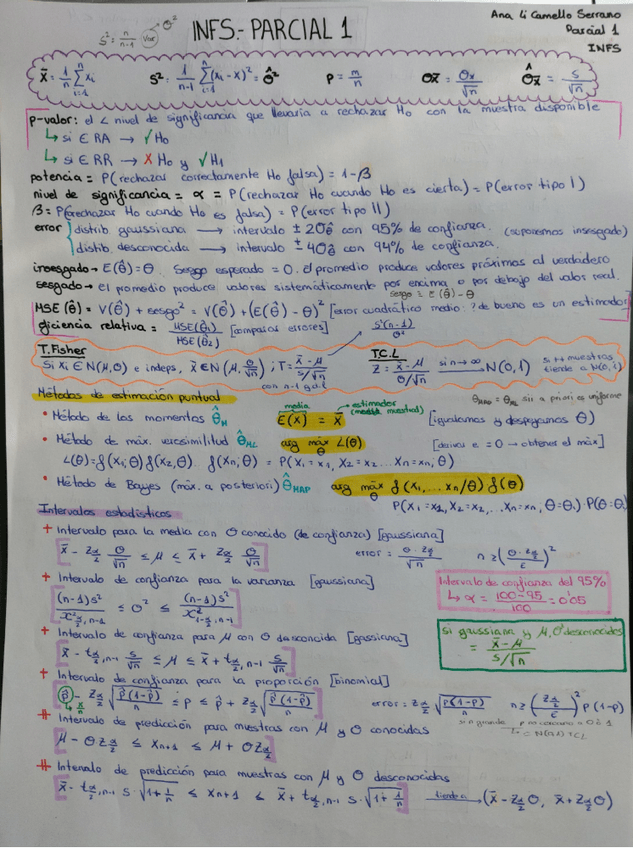 INFS.- PARCIAL 1
Ana Li Camello Serrano
Parcial 1
INFS
S² = n/(n-1) Var → σ²
x̄ = 1/n Σ(i=1, n) xi   S² = 1/(n-1) Σ(i=1, n) (xi - x̄)² = σ̂²   P = m/n   σx̄ = σx/√n   σ̂x̄ = S/√n
P-valor: el < nivel de significancia que llevaría a rechazar H₀ con la muestra disponible
↳ si ∈ RA → ✓ H₀
↳ si ∈ RR → X H₀ y ✓ H₁
potencia = P(rechazar correctamente H₀ falsa) = 1-β
nivel de significancia = α = P(rechazar H₀ cuando H₀ es cierta) = P(error tipo I)
β = P(rechazar H₀ cuando H₀ es falsa) = P(error tipo II)
error distrib gaussiana → intervalo ± 2σ̂ con 95% de confianza. (suponemos insesgado)
distrib desconocida → intervalo ± 4σ̂ con 94% de confianza.
insesgado → E(θ̂) = θ. Sesgo esperado = 0. El promedio produce valores próximos al verdadero
sesgado → el promedio produce valores sistemáticamente por encima o por debajo del valor real.
sesgo = E(θ̂) - θ
MSE(θ̂) = V(θ̂) + sesgo² = V(θ̂) + (E(θ̂) - θ)² [error cuadrático medio: ? de bueno es un estimador]
eficiencia relativa = MSE(θ̂₁)/MSE(θ̂₂) [comparas errores]   S²(n-1)/σ²
T. Fisher
Si xi ∈ N(μ, σ) e indeps, x̄ ∈ N(μ, σ/√n); T = (x̄ - μ)/(S/√n)
con n-1 g.d.l
T.C.L
Z = (x̄ - μ)/(σ/√n) si n→∞ N(0,1)   si ++ muestras tiende a N(0,1)
Métodos de estimación puntual
θMAP = θML si a priori es uniforme
• Método de los momentos θ̂M   media E(x) = x̄ → estimador (media muestral)   [igualamos y despejamos θ]
• Método de máx. verosimilitud θ̂ML   arg máx θ L(θ)   [derivar e = 0 → obtener el máx]
L(θ) = f(x₁; θ) f(x₂, θ) . f(xn; θ) = P(X₁ = x₁, X₂ = x₂ ... Xn = xn, θ)
• Método de Bayes (máx. a posteriori) θ̂MAP   arg máx θ f(x₁, ... xn/θ) f(θ)
P(X₁ = x₁, X₂ = x₂, ... Xn = xn, θ = θi) · P(θ = θi)
Intervalos estadísticos
+ Intervalo para la media con σ conocido (de confianza) [gaussiana]
x̄ - zα/2 σ/√n ≤ μ ≤ x̄ + zα/2 σ/√n   error = σ·zα/2/√n   n ≥ (σ·zα/2/ε)²
+ Intervalo de confianza para la varianza [gaussiana]
(n-1)S²/χ²α/2, n-1 ≤ σ² ≤ (n-1)S²/χ²1-α/2, n-1
Intervalo de confianza del 95%
↳ α = (100-95)/100 = 0'05
+ Intervalo de confianza para μ con σ desconocida [gassiana]
x̄ - tα/2, n-1 S/√n ≤ μ ≤ x̄ + tα/2, n-1 S/√n
si gaussiana y μ, σ desconocidos
= (x̄ - μ)/(S/√n)
+ Intervalo de confianza para la proporción [binomial]
p̂ - zα/2 √(p̂(1-p̂)/n) ≤ p ≤ p̂ + zα/2 √(p̂(1-p̂)/n)   error: zα/2 √(p(1-p)/n)   n ≥ (zα/2/ε)² p(1-p)
↳ x/n
si n grande p no cercano a 0 o 1
TCL
# Intervalo de predicción para muestras con μ y σ conocidas
μ - σ zα/2 ≤ Xn+1 ≤ μ + σ zα/2
# Intervalo de predicción para muestras con μ y σ desconocidas
x̄ - tα/2, n-1 S·√(1+1/n) ≤ Xn+1 ≤ x̄ + tα/2, n-1 S·√(1+1/n)   tiende a → (x̄ - zα/2 σ, x̄ + zα/2 σ)